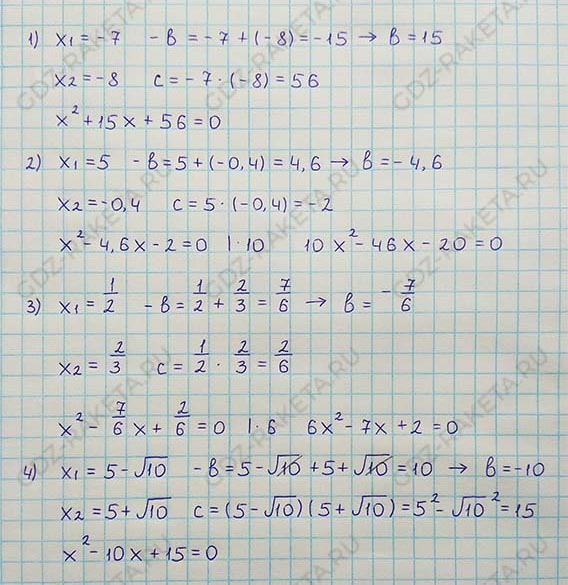 1) x₁ = -7 -в = -7 + (-8) = -15 → в = 15
x₂ = -8 c = -7 · (-8) = 56
x² + 15x + 56 = 0
2) x₁ = 5 -в = 5 + (-0,4) = 4,6 → в = -4,6
x₂ = -0,4 c = 5 · (-0,4) = -2
x² - 4,6x - 2 = 0 | · 10 10x² - 46x - 20 = 0
3) x₁ = 1/2 -в = 1/2 + 2/3 = 7/6 → в = -7/6
x₂ = 2/3 c = 1/2 · 2/3 = 2/6
x² - 7/6 x + 2/6 = 0 | · 6 6x² - 7x + 2 = 0
4) x₁ = 5 - √10 -в = 5 - √10 + 5 + √10 = 10 → в = -10
x₂ = 5 + √10 c = (5 - √10)(5 + √10) = 5² - √10² = 15
x² - 10x + 15 = 0
GDZ-RAKETA.RU